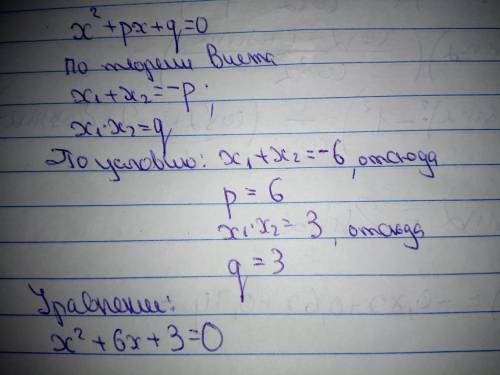 x²+px+q=0
по теореме Виета
x₁+x₂=-p;
x₁·x₂=q
По условию: x₁+x₂=-6, отсюда
p=6
x₁·x₂=3, отсюда
q=3
Уравнение:
x²+6x+3=0